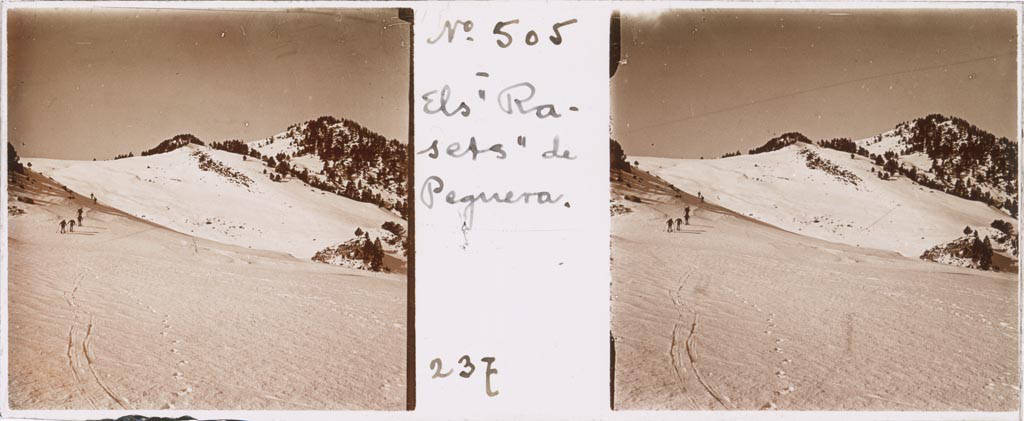 Nº 505
Els "Ra-
sets" de
Peguera.
237